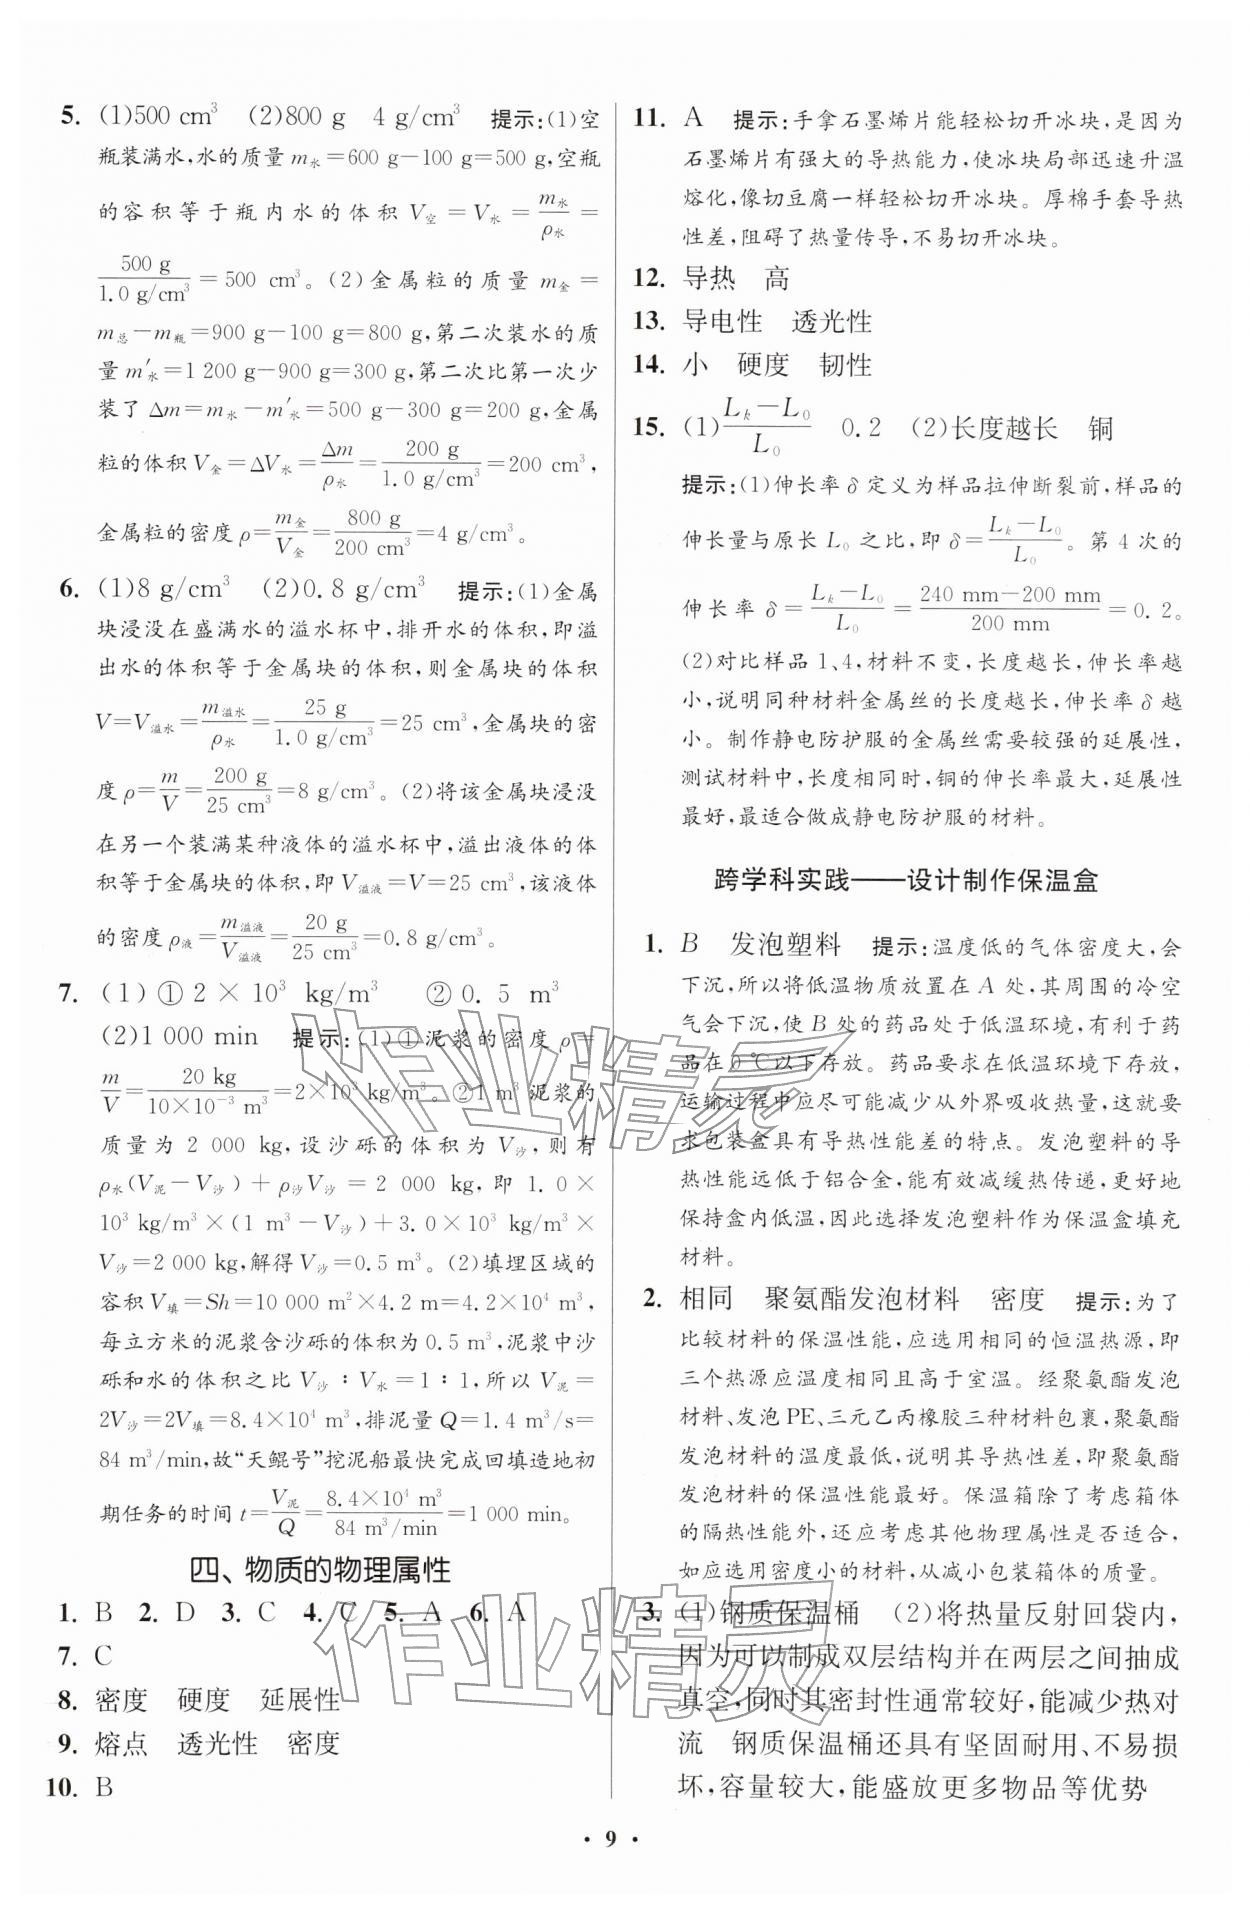 5. (1)500 cm³ (2)800 g 4 g/cm³ 提示:(1)空
瓶装满水,水的质量 m水=600 g-100 g=500 g,空瓶
的容积等于瓶内水的体积 V空=V水=m水/ρ水=
500 g/1.0 g/cm³=500 cm³。(2)金属粒的质量 m金=
m总-m瓶=900 g-100 g=800 g,第二次装水的质
量 m′水=1 200 g-900 g=300 g,第二次比第一次少
装了 Δm=m水-m′水=500 g-300 g=200 g,金属
粒的体积 V金=ΔV水=Δm/ρ水=200 g/1.0 g/cm³=200 cm³,
金属粒的密度 ρ=m金/V金=800 g/200 cm³=4 g/cm³。
6. (1)8 g/cm³ (2)0.8 g/cm³ 提示:(1)金属
块浸没在盛满水的溢水杯中,排开水的体积,即溢
出水的体积等于金属块的体积,则金属块的体积
V=V溢水=m溢水/ρ水=25 g/1.0 g/cm³=25 cm³,金属块的密
度 ρ=m/V=200 g/25 cm³=8 g/cm³。(2)将该金属块浸没
在另一个装满某种液体的溢水杯中,溢出液体的体
积等于金属块的体积,即 V溢液=V=25 cm³,该液体
的密度 ρ液=m溢液/V溢液=20 g/25 cm³=0.8 g/cm³。
7. (1)①2×10³ kg/m³ ②0.5 m³
(2)1 000 min 提示:(1)①泥浆的密度 ρ=
m/V=20 kg/10×10⁻³ m³=2×10³ kg/m³。②1 m³ 泥浆的
质量为 2 000 kg,设沙砾的体积为 V沙,则有
ρ水(V泥-V沙)+ρ沙V沙=2 000 kg,即 1.0×
10³ kg/m³×(1 m³-V沙)+3.0×10³ kg/m³×
V沙=2 000 kg,解得 V沙=0.5 m³。(2)填埋区域的
容积 V填=Sh=10 000 m²×4.2 m=4.2×10⁴ m³,
每立方米的泥浆含沙砾的体积为 0.5 m³,泥浆中沙
砾和水的体积之比 V沙:V水=1:1,所以 V泥=
2V沙=2V填=8.4×10⁴ m³,排泥量 Q=1.4 m³/s=
84 m³/min,故“天鲲号”挖泥船最快完成回填造地初
期任务的时间 t=V泥/Q=8.4×10⁴ m³/84 m³/min=1 000 min。
四、物质的物理属性
1. B 2. D 3. C 4. C 5. A 6. A
7. C
8. 密度 硬度 延展性
9. 熔点 透光性 密度
10. B
11. A 提示:手拿石墨烯片能轻松切开冰块,是因为
石墨烯片有强大的导热能力,使冰块局部迅速升温
熔化,像切豆腐一样轻松切开冰块。厚棉手套导热
性差,阻碍了热量传导,不易切开冰块。
12. 导热 高
13. 导电性 透光性
14. 小 硬度 韧性
15. (1)Lk-L0/L0 0.2 (2)长度越长 铜
提示:(1)伸长率 δ 定义为样品拉伸断裂前,样品的
伸长量与原长 L0 之比,即 δ=Lk-L0/L0。第 4 次的
伸长率 δ=Lk-L0/L0=240 mm-200 mm/200 mm=0.2。
(2)对比样品 1、4,材料不变,长度越长,伸长率越
小,说明同种材料金属丝的长度越长,伸长率 δ 越
小。制作静电防护服的金属丝需要较强的延展性,
测试材料中,长度相同时,铜的伸长率最大,延展性
最好,最适合做成静电防护服的材料。
跨学科实践——设计制作保温盒
1. B 发泡塑料 提示:温度低的气体密度大,会
下沉,所以将低温物质放置在 A 处,其周围的冷空
气会下沉,使 B 处的药品处于低温环境,有利于药
品在 0 ℃以下存放。药品要求在低温环境下存放,
运输过程中应尽可能减少从外界吸收热量,这就要
求包装盒具有导热性能差的特点。发泡塑料的导
热性能远低于铝合金,能有效减缓热传递,更好地
保持盒内低温,因此选择发泡塑料作为保温盒填充
材料。
2. 相同 聚氨酯发泡材料 密度 提示:为了
比较材料的保温性能,应选用相同的恒温热源,即
三个热源应温度相同且高于室温。经聚氨酯发泡
材料、发泡 PE、三元乙丙橡胶三种材料包裹,聚氨酯
发泡材料的温度最低,说明其导热性差,即聚氨酯
发泡材料的保温性能最好。保温箱除了考虑箱体
的隔热性能外,还应考虑其他物理属性是否适合,
如应选用密度小的材料,从减小包装箱体的质量。
3. (1)钢质保温桶 (2)将热量反射回袋内,
因为可以制成双层结构并在两层之间抽成
真空,同时其密封性通常较好,能减少热对
流 钢质保温桶还具有坚固耐用、不易损
坏,容量较大,能盛放更多物品等优势
· 9 ·
作业精灵
作业精灵